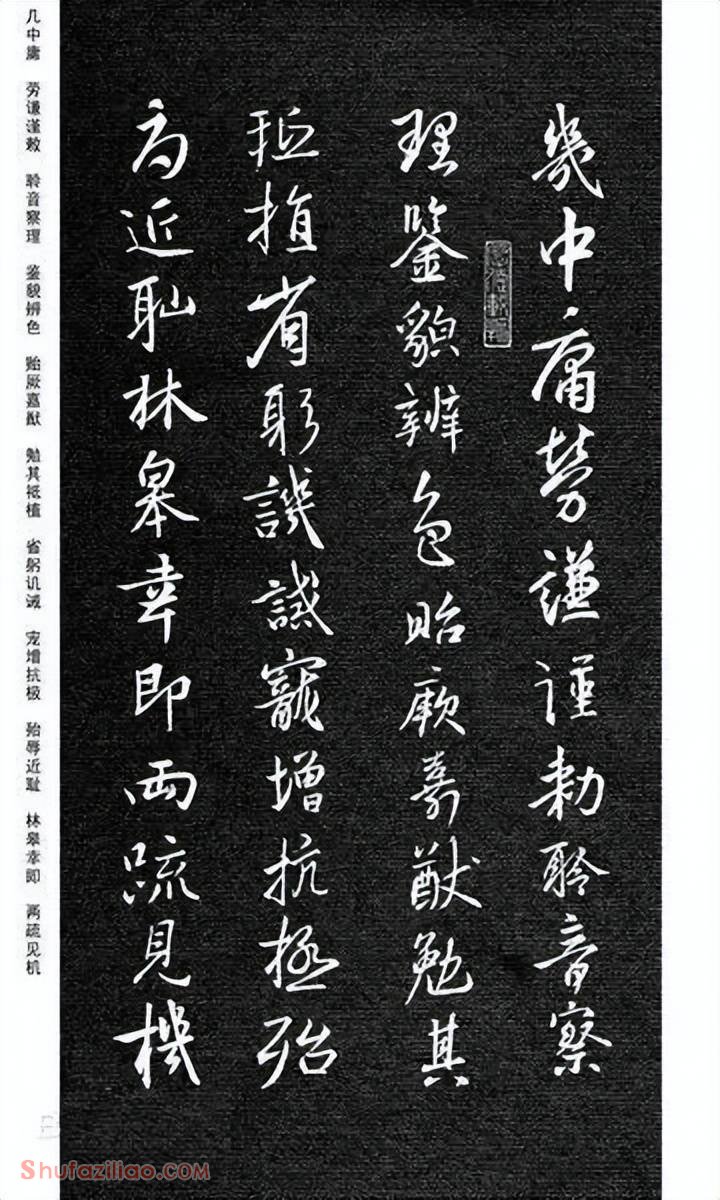 幾中庸勞謙謹勅聆音察
理鑒貌辨色貽厥嘉猷勉其
祗植省躬譏誡寵增抗極殆
辱近耻林皋幸即兩疏見機
几中庸 劳谦谨敕 聆音察理 鉴貌辨色 贻厥嘉猷 勉其祗植 省躬讥诫 宠增抗极 殆辱近耻 林皋幸即 两疏见机
Shufaziliao.com